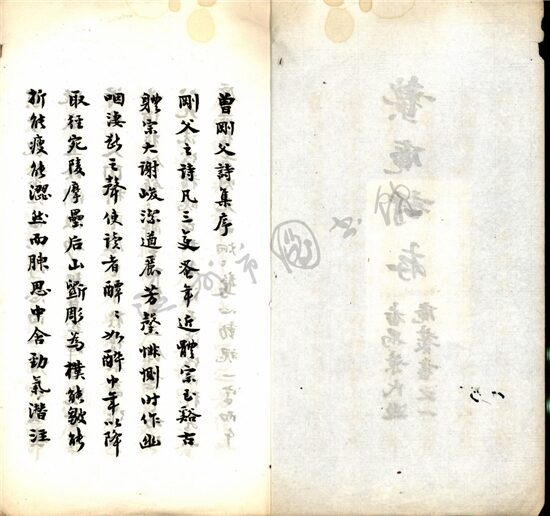 曾剛父詩集序
剛父之詩凡三變蚤年近體宗玉谿古
體宗大謝峻潔遒麗芳馨悱惻时作幽
咽淒斷之聲使讀者醰〻如醉中年以降
取徑宛陵摩壘后山斲彫為樸能皺能
折能瘦能澀然而腴思中含勁氣潛注
蟄庵詩存